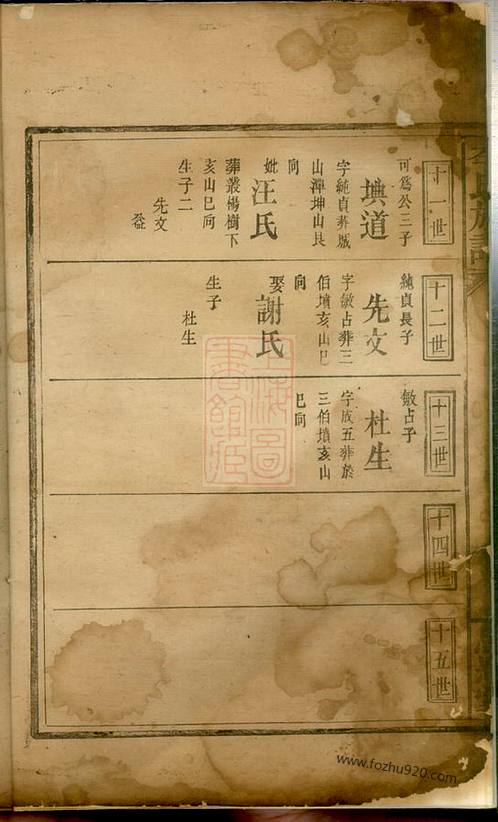 十一世
可爲公三子
塽道
字純貞葬馘
山潭坤山艮
向
妣汪氏
葬叢楊樹下
亥山巳向
生子二
先文
從
十二世
純貞長子
先文
字敏占葬三
伯墳亥山巳
向
娶謝氏
生子
杜生
十三世
敏占子
杜生
字成五葬於
三伯墳亥山
巳向
十四世
十五世
上海圖書館藏
www.fozhu920.com